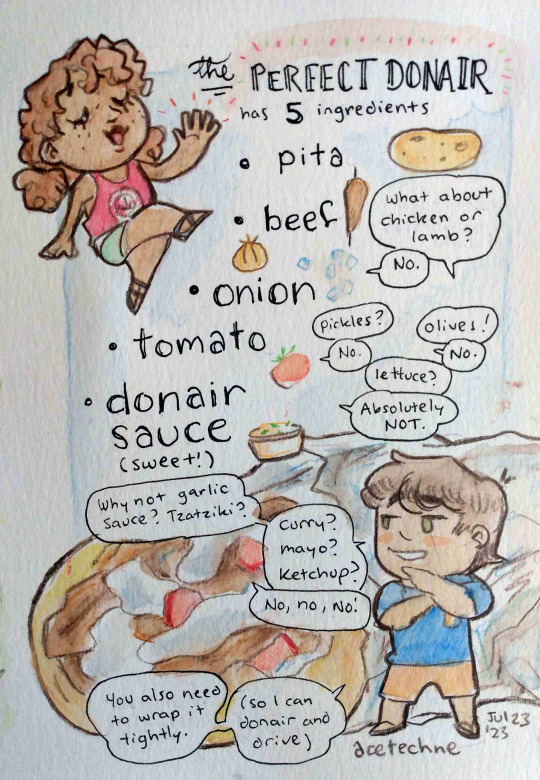 the PERFECT DONAIR
has 5 ingredients
• pita
• beef
What about
chicken or
lamb?
No.
• onion
pickles?
No.
olives!
No.
• tomato
lettuce?
Absolutely
NOT.
• donair
sauce
(sweet!)
Why not garlic
sauce? Tzatziki?
Curry?
mayo?
Ketchup?
No, no, No!
You also need
to wrap it
tightly.
(so I can
donair and
drive)
Jul 23
'23
acetechne